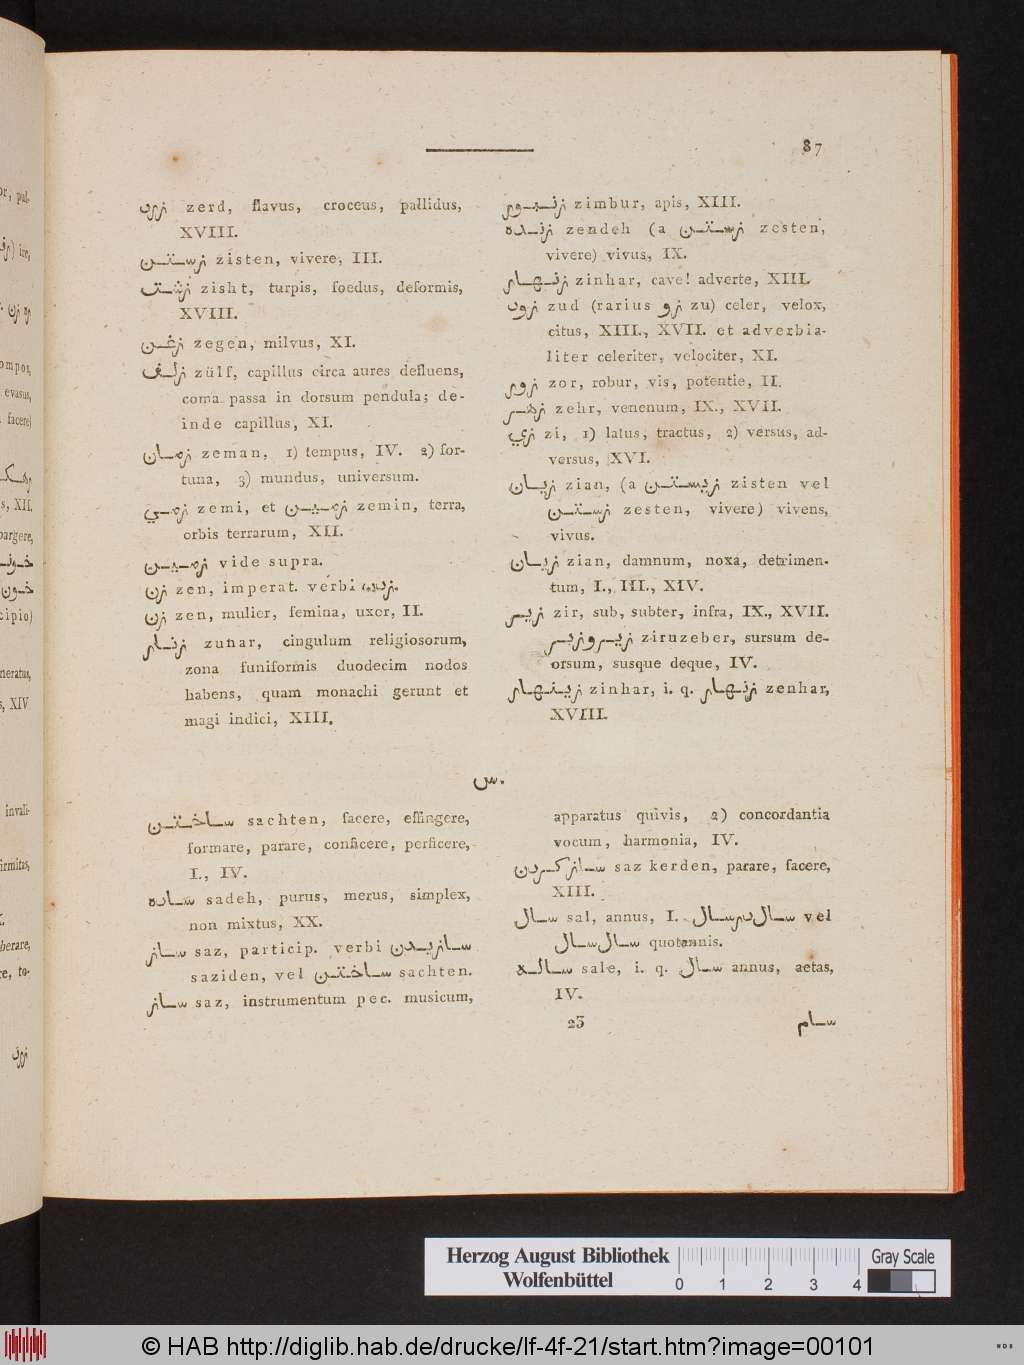 87
زرد zerd, flavus, croceus, pallidus,
XVIII.
زستن zisten, vivere, III.
زشت zisht, turpis, foedus, deformis,
XVIII.
زغن zegen, milvus, XI.
زلف zülf, capillus circa aures defluens,
coma passa in dorsum pendula; de-
inde capillus, XI.
زمان zeman, 1) tempus, IV. 2) for-
tuna, 3) mundus, universum.
زمي zemi, et زمين zemin, terra,
orbis terrarum, XII.
زمين vide supra.
زن zen, imperat. verbi زدن.
زن zen, mulier, femina, uxor, II.
زنار zunar, cingulum religiosorum,
zona funiformis duodecim nodos
habens, quam monachi gerunt et
magi indici, XIII.
زنبور zimbur, apis, XIII.
زنده zendeh (a زستن zesten,
vivere) vivus, IX.
زنهار zinhar, cave! adverte, XIII.
زود zud (rarius زو zu) celer, velox,
citus, XIII., XVII. et adverbia-
liter celeriter, velociter, XI.
زور zor, robur, vis, potentie, II.
زهر zehr, venenum, IX., XVII.
زي zi, 1) latus, tractus, 2) versus, ad-
versus, XVI.
زيان zian, (a زيستن zisten vel
زستن zesten, vivere) vivens,
vivus.
زيان zian, damnum, noxa, detrimen-
tum, I., III., XIV.
زير zir, sub, subter, infra, IX., XVII.
زيروزبر ziruzeber, sursum de-
orsum, susque deque, IV.
زينهار zinhar, i. q. زنهار zenhar,
XVIII.
س.
ساختن sachten, facere, effingere,
formare, parare, conficere, perficere,
I., IV.
ساده sadeh, purus, merus, simplex,
non mixtus, XX.
ساز saz, particip. verbi سازيدن
saziden, vel ساختن sachten.
ساز saz, instrumentum pec. musicum,
apparatus quivis, 2) concordantia
vocum, harmonia, IV.
ساز كردن saz kerden, parare, facere,
XIII.
سال sal, annus, I. سال درسال vel
سال سال quotannis.
ساله sale, i. q. سال annus, aetas,
IV.
23 سام
or, pul.
ire,
ompos,
evasus,
facere)
s, XII.
pargere,
cipio)
neratus,
s, XIV.
invali-
firmitas,
berare,
re, to-
Herzog August Bibliothek
Wolfenbüttel
0 1 2 3 4
Gray Scale
© HAB http://diglib.hab.de/drucke/lf-4f-21/start.htm?image=00101